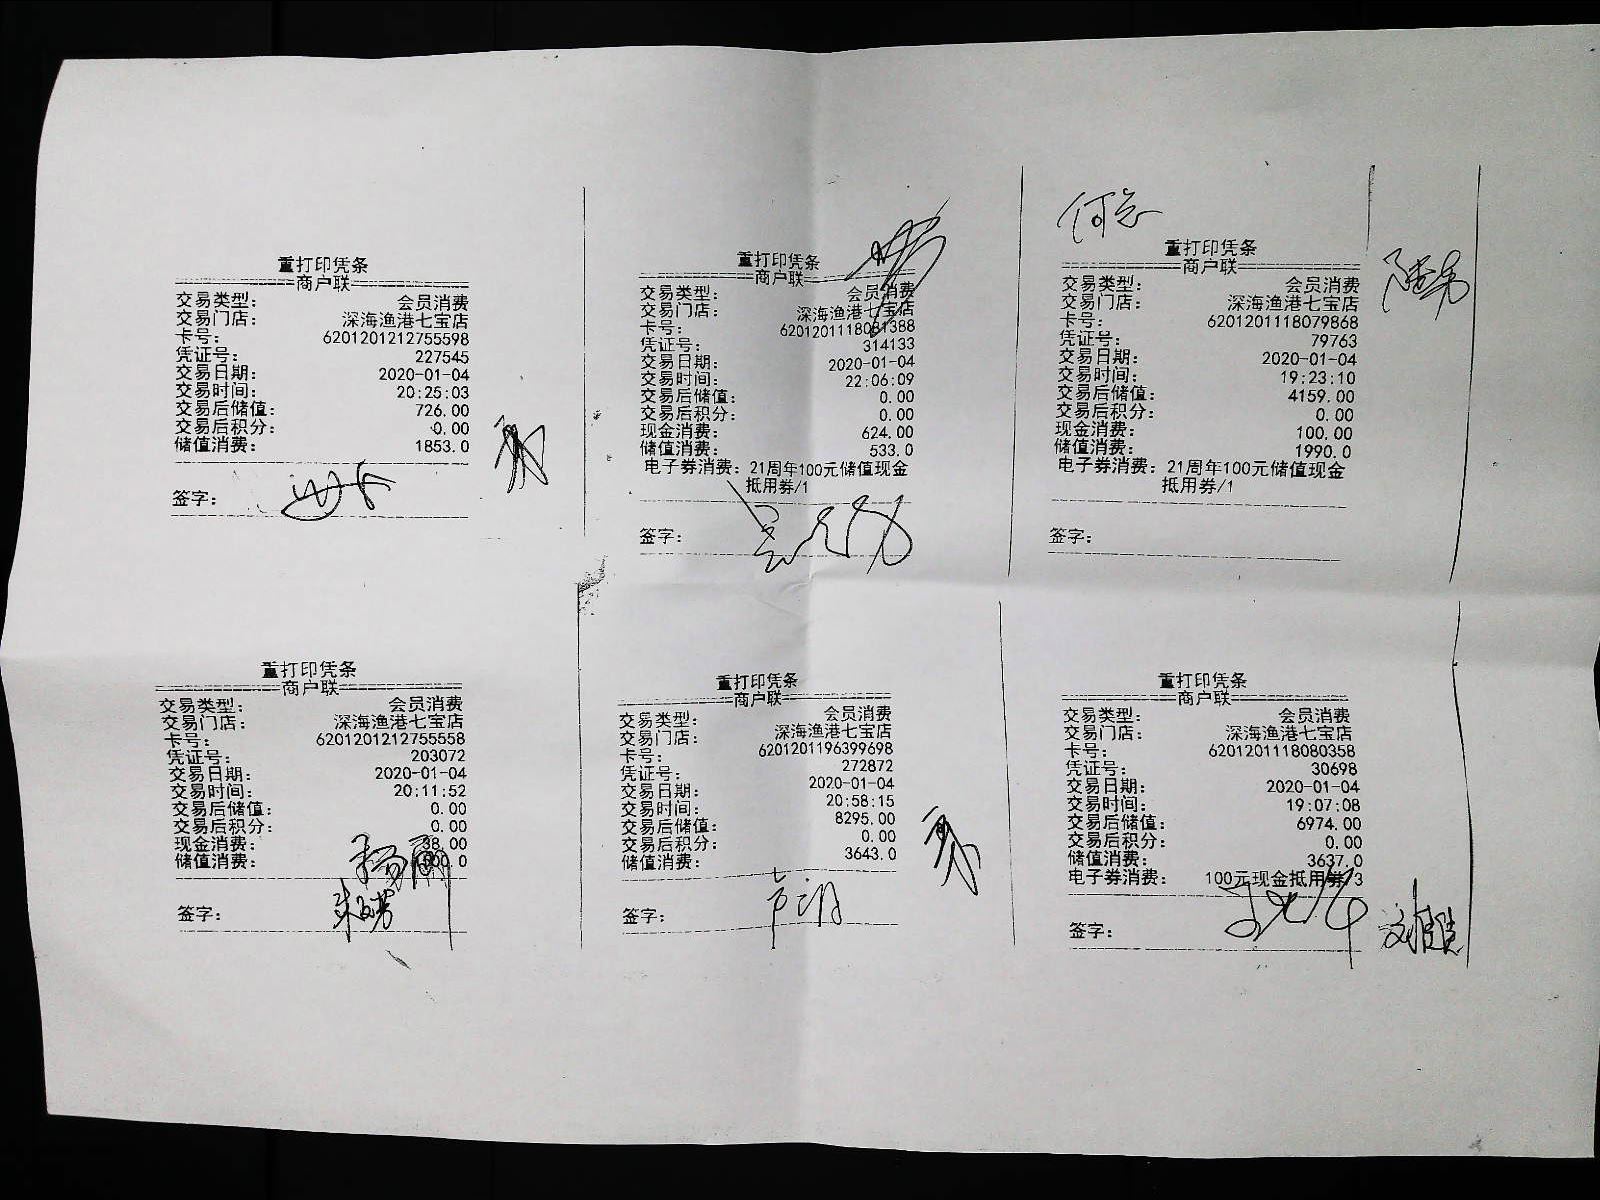 重打印凭条
商户联
交易类型: 会员消费
交易门店: 深海渔港七宝店
卡号: 6201201212755598
凭证号: 227545
交易日期: 2020-01-04
交易时间: 20:25:03
交易后储值: 726.00
交易后积分: 0.00
储值消费: 1853.0
签字:
重打印凭条
商户联
交易类型: 会员消费
交易门店: 深海渔港七宝店
卡号: 6201201118081388
凭证号: 314133
交易日期: 2020-01-04
交易时间: 22:06:09
交易后储值: 0.00
交易后积分: 0.00
现金消费: 624.00
储值消费: 533.0
电子券消费: 21周年100元储值现金
抵用券/1
签字:
何总
重打印凭条
商户联
交易类型: 会员消费
交易门店: 深海渔港七宝店
卡号: 6201201118079868
凭证号: 79763
交易日期: 2020-01-04
交易时间: 19:23:10
交易后储值: 4159.00
交易后积分: 0.00
现金消费: 100.00
储值消费: 1990.0
电子券消费: 21周年100元储值现金
抵用券/1
签字:
重打印凭条
商户联
交易类型: 会员消费
交易门店: 深海渔港七宝店
卡号: 6201201212755558
凭证号: 203072
交易日期: 2020-01-04
交易时间: 20:11:52
交易后储值: 0.00
交易后积分: 0.00
现金消费: 38.00
储值消费:
签字:
重打印凭条
商户联
交易类型: 会员消费
交易门店: 深海渔港七宝店
卡号: 6201201196399698
凭证号: 272872
交易日期: 2020-01-04
交易时间: 20:58:15
交易后储值: 8295.00
交易后积分: 0.00
储值消费: 3643.0
签字:
重打印凭条
商户联
交易类型: 会员消费
交易门店: 深海渔港七宝店
卡号: 6201201118080358
凭证号: 30698
交易日期: 2020-01-04
交易时间: 19:07:08
交易后储值: 6974.00
交易后积分: 0.00
储值消费: 3637.0
电子券消费: 100元现金抵用券/3
签字: